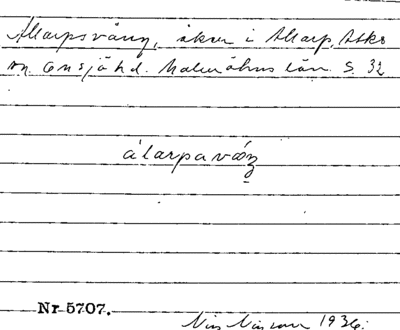 Allarpsvång, åker i Allarp, Ask
sn. Onsjö hd. Malmöhus län. S. 32
álarpavóŋ
Nr 5707.
Nils Nilsson 1936.